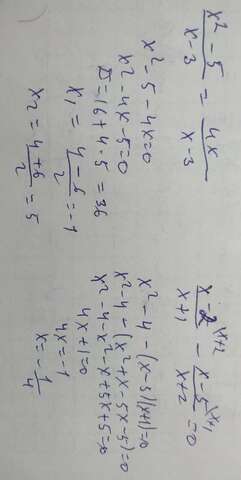 x² - 5 / x - 3 = 4x / x - 3
x² - 5 - 4x = 0
x² - 4x - 5 = 0
D = 16 + 4 · 5 = 36
x₁ = 4 - 6 / 2 = -1
x₂ = 4 + 6 / 2 = 5
x - 2 \x+2 / x + 1 - x - 5 \x+1 / x + 2 = 0
x² - 4 - (x - 5)(x+1) = 0
x² - 4 - (x² + x - 5x - 5) = 0
x² - 4 - x² - x + 5x + 5 = 0
4x + 1 = 0
4x = -1
x = 1 / 4